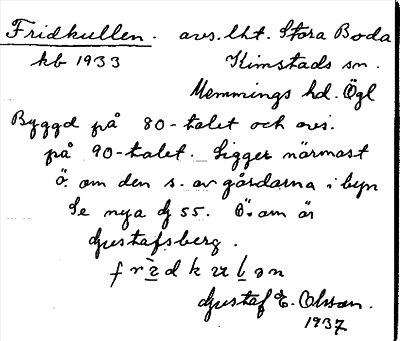 Fridkullen. avs. lht. Stora Boda
kb 1933 Kimstads sn.
Memmings hd. Ögl
Byggd på 80-talet och avs.
på 90-talet. Ligger närmast
ö. om den s. av gårdarna i byn
Se nya G 55. Ö. om är
Gustafsberg.
Gustaf E. Olsson.
1937